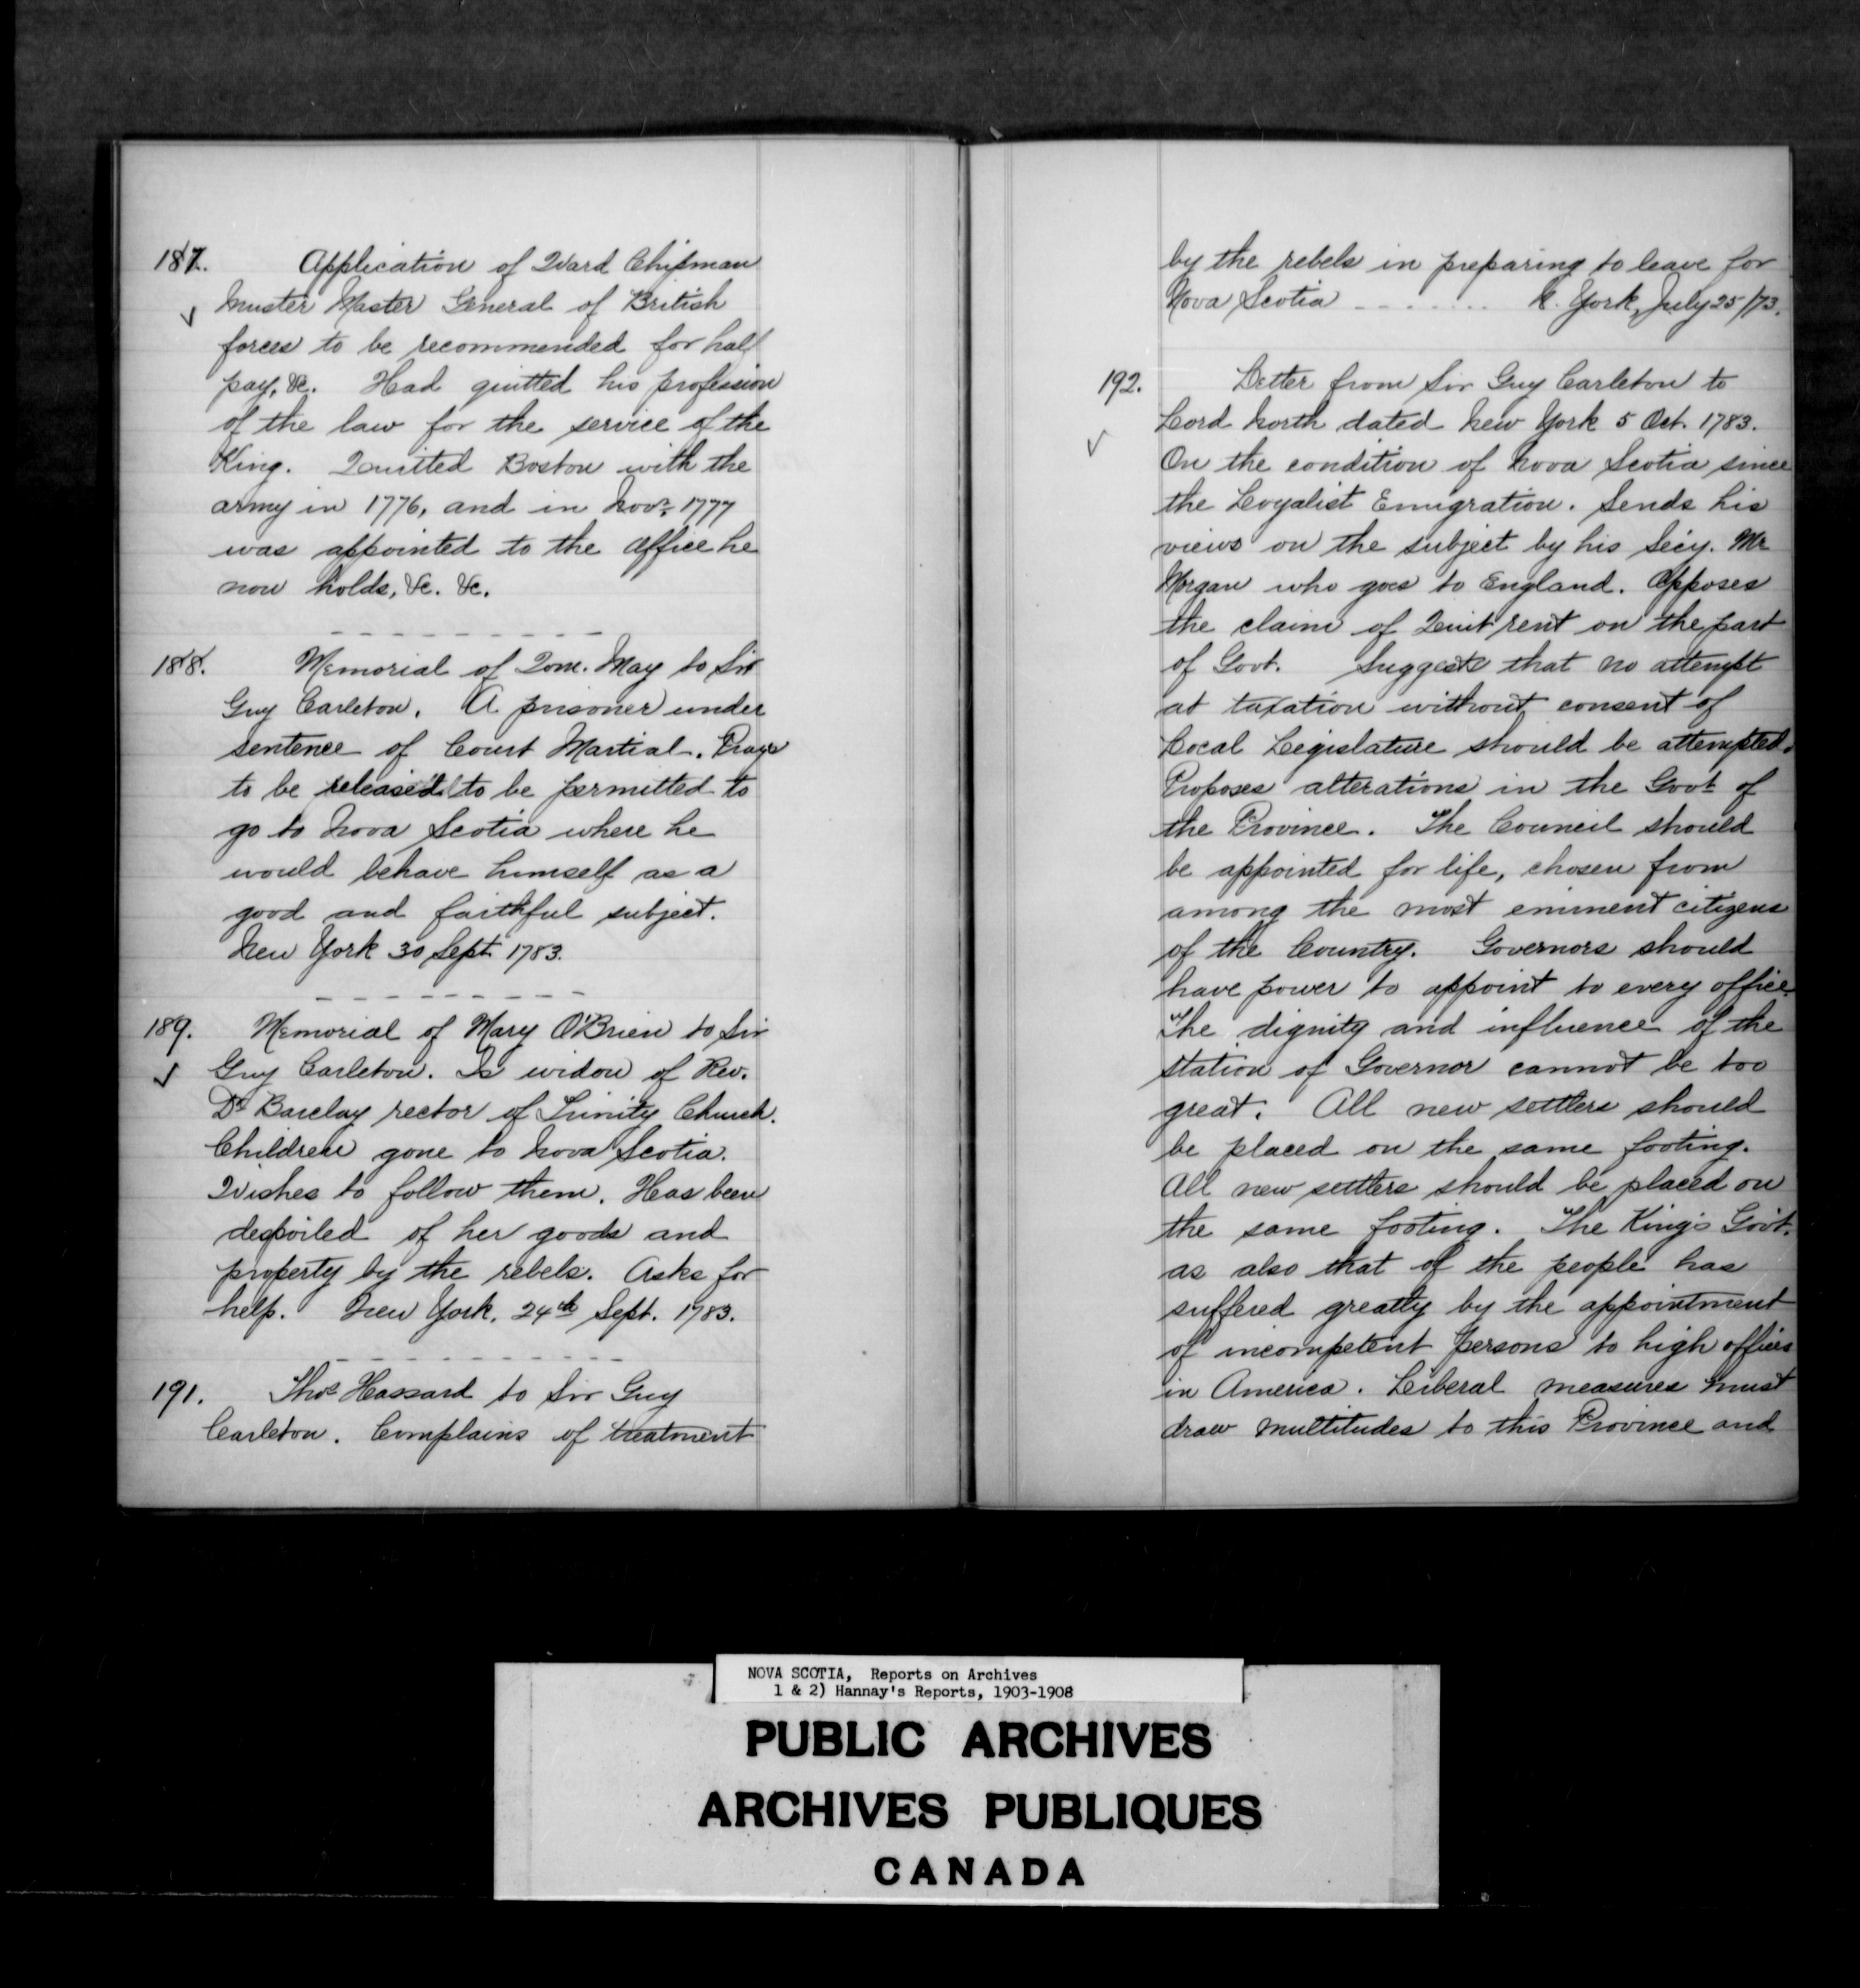 187. Application of Ward Chipman
Muster Master General of British
forces to be recommended for half
pay, &c. Had quitted his profession
of the law for the service of the
King. Quitted Boston with the
army in 1776, and in Novr. 1777
was appointed to the office he
now holds, &c. &c.
188. Memorial of Wm. May to Sir
Guy Carleton. A prisoner under
sentence of Court Martial. Prays
to be released to be permitted to
go to Nova Scotia where he
would behave himself as a
good and faithful subject.
New York 30 Sept 1783.
189. Memorial of Mary O'Brien to Sir
Guy Carleton. Is widow of Rev.
Dr. Barclay rector of Trinity Church.
Children gone to Nova Scotia.
Wishes to follow them. Has been
despoiled of her goods and
property by the rebels. Asks for
help. New York, 24th Sept. 1783.
191. Thos Hassard to Sir Guy
Carleton. Complains of treatment
by the rebels in preparing to leave for
Nova Scotia ........ N. York, July 25/73.
192. Letter from Sir Guy Carleton to
Lord North dated New York 5 Oct. 1783.
On the condition of Nova Scotia since
the Loyalist Emigration. Sends his
views on the subject by his Secy. Mr
Morgan who goes to England. Opposes
the claim of Quit rent on the part
of Govt. Suggests that no attempt
at taxation without consent of
Local Legislature should be attempted.
Proposes alterations in the Govt of
the Province. The Council should
be appointed for life, chosen from
among the most eminent citizens
of the Country. Governors should
have power to appoint to every office.
The dignity and influence of the
station of Governor cannot be too
great. All new settlers should
be placed on the same footing.
All new settlers should be placed on
the same footing. The King's Gov't.
as also that of the people has
suffered greatly by the appointment
of incompetent persons to high offices
in America. Liberal measures must
draw multitudes to this Province and
NOVA SCOTIA, Reports on Archives
1 & 2) Hannay's Reports, 1903-1908
PUBLIC ARCHIVES
ARCHIVES PUBLIQUES
CANADA